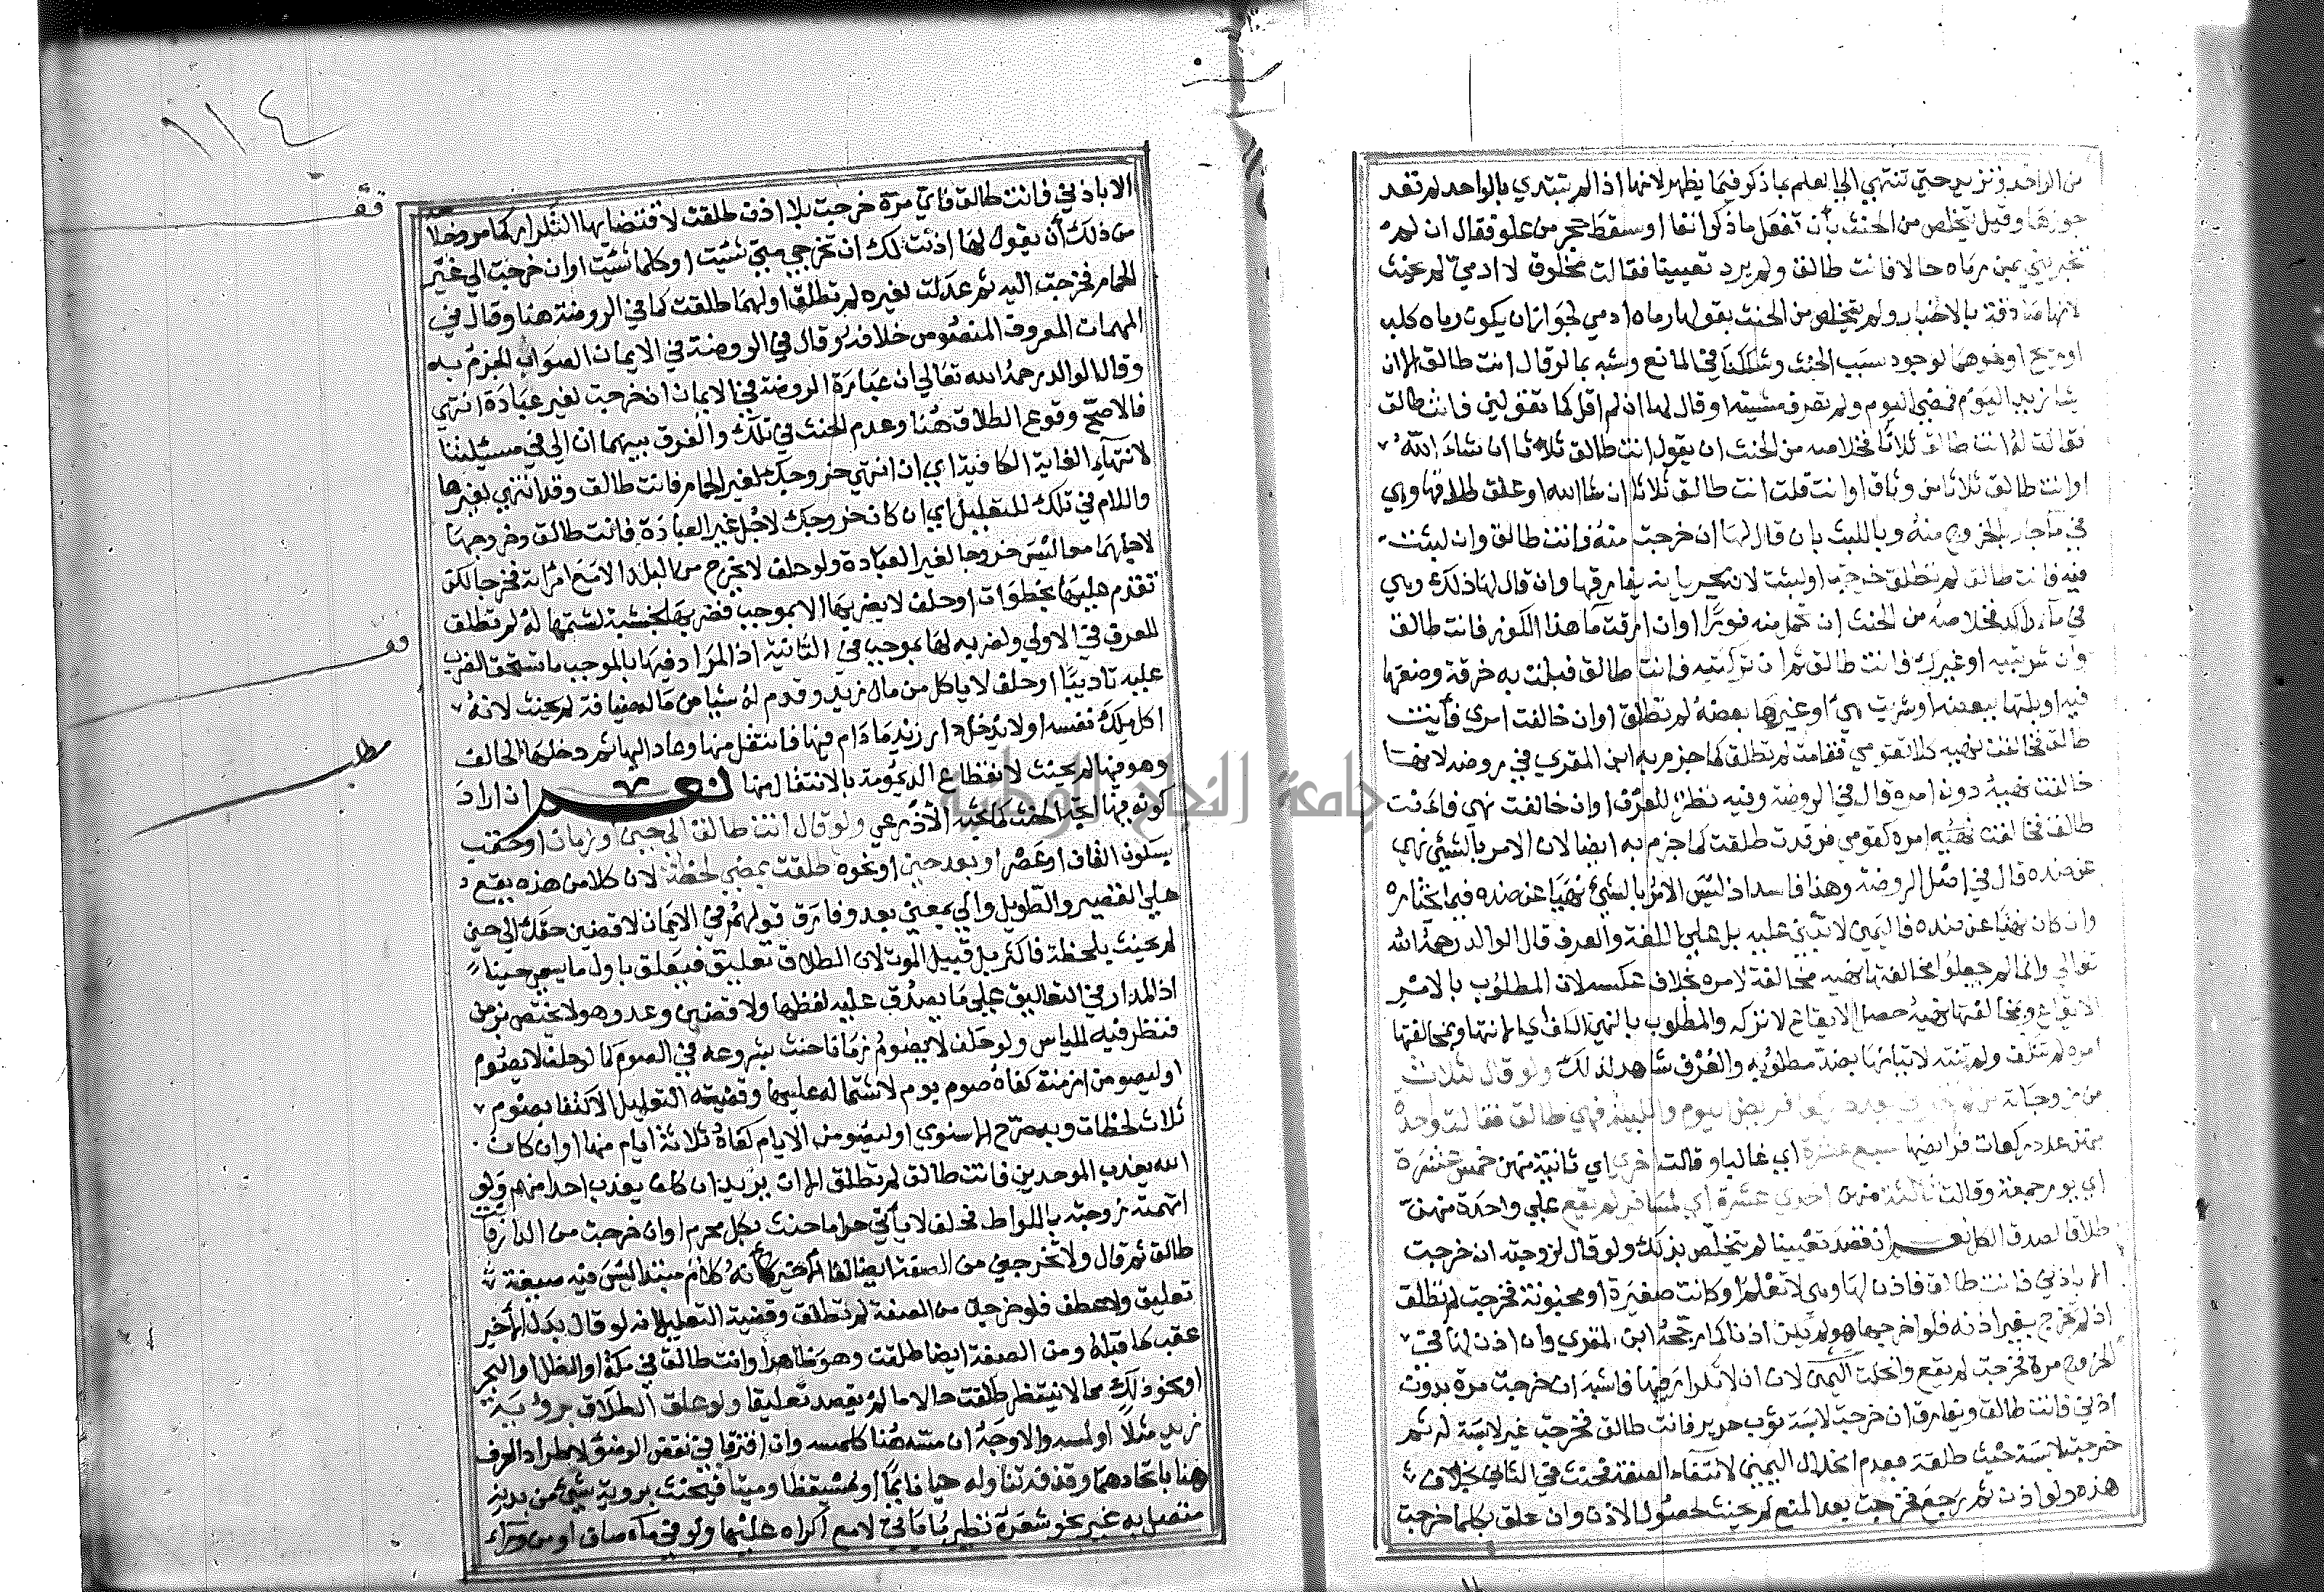 من الواحد وتزيد حتي تنتهي الي العلم بما ذكر فيما يظهر لانها اذا لم تبتدي بالواحد لم تعد
جوزها وقيل يخلص من الحنث بأن تفعل ما ذكر انفا او سقط حجر من علو فقال ان لم
تخبريني بمن رماه حالا فانت طالق ولم يرد تعيينا فقالت مخلوق لا ادمي لم يحنث
لانها صادقة بالاخبار ولم يتخلص من الحنث بقولها رماه ادمي لجواز ان يكون رماه كلب
او ريح او نحوهما لوجود سبب الحنث وشككنا في المانع وشبه بما لو قال انت طالق الا ان
يشا زيد اليوم فمضي اليوم ولم تعرف مشيته او قال لها ان لم اقل كما تقولين فانت طالق
فقالت له انت طالق ثلاثا فخلاصه من الحنث ان يقول انت طالق ثلاثا ان شاء الله
او انت طالق ثلاثا من وثاق او انت قلت انت طالق ثلاثا ان شا الله او علق طلاقها وهي
في ما جار بالخروج منه وباللبث بان قال لها ان خرجت منه فانت طالق وان لبثت
فيه فانت طالق لم تطلق خرجت او لبثت لانه بجريانه يفارقها وان قال لها ذلك وهي
في ماء راكد فخلاصه من الحنث ان تحمل منه فورا او ان ارقت ما هذا الكوز فانت طالق
وان شربتيه او غيرك فانت طالق ثم ان تركتيه فانت طالق فبلت به خرقة وضعتها
فيه او بلتها ببعضه او شربت هي او غيرها بعضه لم تطلق او ان خالفت امري فأنت
طالق فخالفت نهيه كلا تقومي فقامت لم تطلق كما جزم به ابن المقري في روضه لانها
خالفت نهيه دون امره قال في الروضة وفيه نظر للعرف او ان خالفت نهي فأنت
طالق فخالفت نهيه امره كقومي فرقدت طلقت كما جزم به ايضا لان الامر بالشيئ نهي
عن ضده قال في اصل الروضة وهذا فاسد اذ ليس الامر بالشيئ نهيا عن ضده فيما نختاره
وان كان نهيا عن ضده فاليمين لا تبني عليه بل علي اللغة والعرف قال الوالد رحمه الله
تعالي وانما لم يجعلوا مخالفتها نهيه مخالفة لامره بخلاف عكسه لان المطلوب بالامر
الايقاع وبمخالفتها نهيه حصل الايقاع لا تركه والمطلوب بالنهي الكف اي الانتها وبمخالفتها
امره لم تكف ولم تنته لاتيانها بضد مطلوبه والعرف شاهد لذلك ولو قال لثلاث
من زوجاته من لم تخبرني بعدد ركعات فرايض اليوم والليلة فهي طالق فقالت واحدة
منهن عدد ركعات فرايضها سبع عشرة اي غالبا وقالت اخري اي ثانية منهن خمس عشرة
اي يوم جمعة وقالت ثالثة منهن احدي عشرة اي لمسافر لم يقع علي واحدة منهن
طلاق لصدق الكل نعم ان قصد تعيينا لم يتخلص بذلك ولو قال لزوجته ان خرجت
الا باذني فانت طالق فاذن لها وهي لا تعلم او كانت صغيرة او مجنونة فخرجت لم تطلق
اذ لم تخرج بغير اذنه فلو اخرجها هو لم يكن اذنا كما رجحه ابن المقري وان اذن لها في
الخروج مرة فخرجت لم يقع وانحلت اليمين لان ان لا تكرار فيها فاشبه ان خرجت مرة بدون
اذني فانت طالق ويفارق ان خرجت لابسة ثوب حرير فانت طالق فخرجت غير لابسة له ثم
خرجت لابسة حيث طلقت بعدم انحلال اليمين لانتفاء الصفة فحنث في الثاني بخلاف
هذه ولو اذن ثم رجع فخرجت بعد المنع لم يحنث لحصول الاذن وان علق بكلما خرجت
١١٤
الا باذني فانت طالق فاي مرة خرجت بلا اذن طلقت لاقتضايها التكرار كما مر وخلا
من ذلك أن يقول لها اذنت لك ان تخرجي متي شئيت او كلما شئيت او ان خرجت الي غير
الحمام فخرجت اليه ثم عدلت لغيره لم تطلق او لهما طلقت كما في الروضة هنا وقال في
المهمات المعروف المنصوص خلافه وقال في الروضة في الايمان الصواب الجزم به
وقال الوالد رحمه الله تعالي ان عبارة الروضة في الايمان ان خرجت لغير عيادة انتهي
فالاصح وقوع الطلاق هنا وعدم الحنث في تلك والفرق بينهما ان الي في مسئيلتنا
لانتهاء الغاية الكافية اي ان انتهي خروجك لغير الحمام فانت طالق وقد انتهي لغيرها
واللام في تلك للتعليل اي ان كان خروجك لاجل غير العيادة فانت طالق وخروجها
لاجلهما معا ليس خروجا لغير العيادة ولو حلف لا يخرج من البلد الا مع امراته فخرجا لكن
تقدم عليها بخطوات او حلف لا يضربها الا بموجب فضربها بخشبة لشتمها له لم تطلق
للعرف في الاولي ولضربه لها بموجب في الثانية اذ المراد فيها بالموجب ما تستحق الضرب
عليه تاديبا او حلف لا ياكل من مال زيد وقدم له شيا من ماله ضيافة لم يحنث لانه
اكل ملك نفسه او لا يدخل دار زيد ما دام فيها فانتقل منها وعاد اليها ثم دخلها الحالف
وهو فيها لم يحنث لانقطاع الديمومة بالانتقال منها نعم ان اراد
كونه فيها اتجه الحنث كما بحثه الأذرعي ولو قال انت طالق الي حين او زمان او حقب
بسكون القاف او عصر او بعد حين او نحوه طلقت بمضي لحظة لان كلا من هذه يقع
علي القصير والطويل والي بمعني بعد وفارق قولهم في الايمان لاقضين حقك الي حين
لم يحنث بلحظة فاكثر بل قبيل الموت لان الطلاق تعليق فيتعلق باول ما يسمي حينا
اذ المدار في التعاليق علي ما يصدق عليه لفظها ولاقضين وعد وهو لا يختص بزمن
فنظر فيه للياس ولو حلف لا يصوم زمانا حنث بشروعه في الصوم كما لو حلف لا يصوم
او ليصومن ازمنة كفاه صوم يوم لاشتماله عليها وقضيته التعليل الاكتفا بصوم
ثلاث لحظات وبه صرح الاسنوي او ليصومن الايام كفاه ثلاثة ايام منها او ان كان
الله يعذب الموحدين فانت طالق لم تطلق الا ان يريد ان كان يعذب احدا منهم ولو
اتهمته زوجته باللواط فحلف لا ياتي حراما حنث بكل محرم او ان خرجت من الدار فانت
طالق ثم قال ولا تخرجي من الصفة ايضا لغا الاخير لانه كلام مبتدا ليس فيه صيغة
تعليق ولا عطف فلو خرجت من الصفة لم تطلق وقضية التعليل انه لو قال بدل الاخير
عقب ما قبله ومن الصفة ايضا طلقت وهو ظاهر او انت طالق في مكة او الظل او البحر
او نحو ذلك مما لا ينتظر طلقت حالا ما لم يقصد تعليقا ولو علق الطلاق بروية
زيد مثلا او لمسه والاوجه ان مسه هنا كلمسه وان افترقا في نقض الوضوء لاطراد العرف
هنا باتحادهما وقذفه تناوله حيا نايما او مستيقظا وميتا فيحنث بروية شيئ من بدنه
متصل به غير نحو شعره نظير ما ياتي لا مع اكراه عليها ولو في ماء صاف او من وراء
قف
قف
مطلب
جامعة النجاح الوطنية